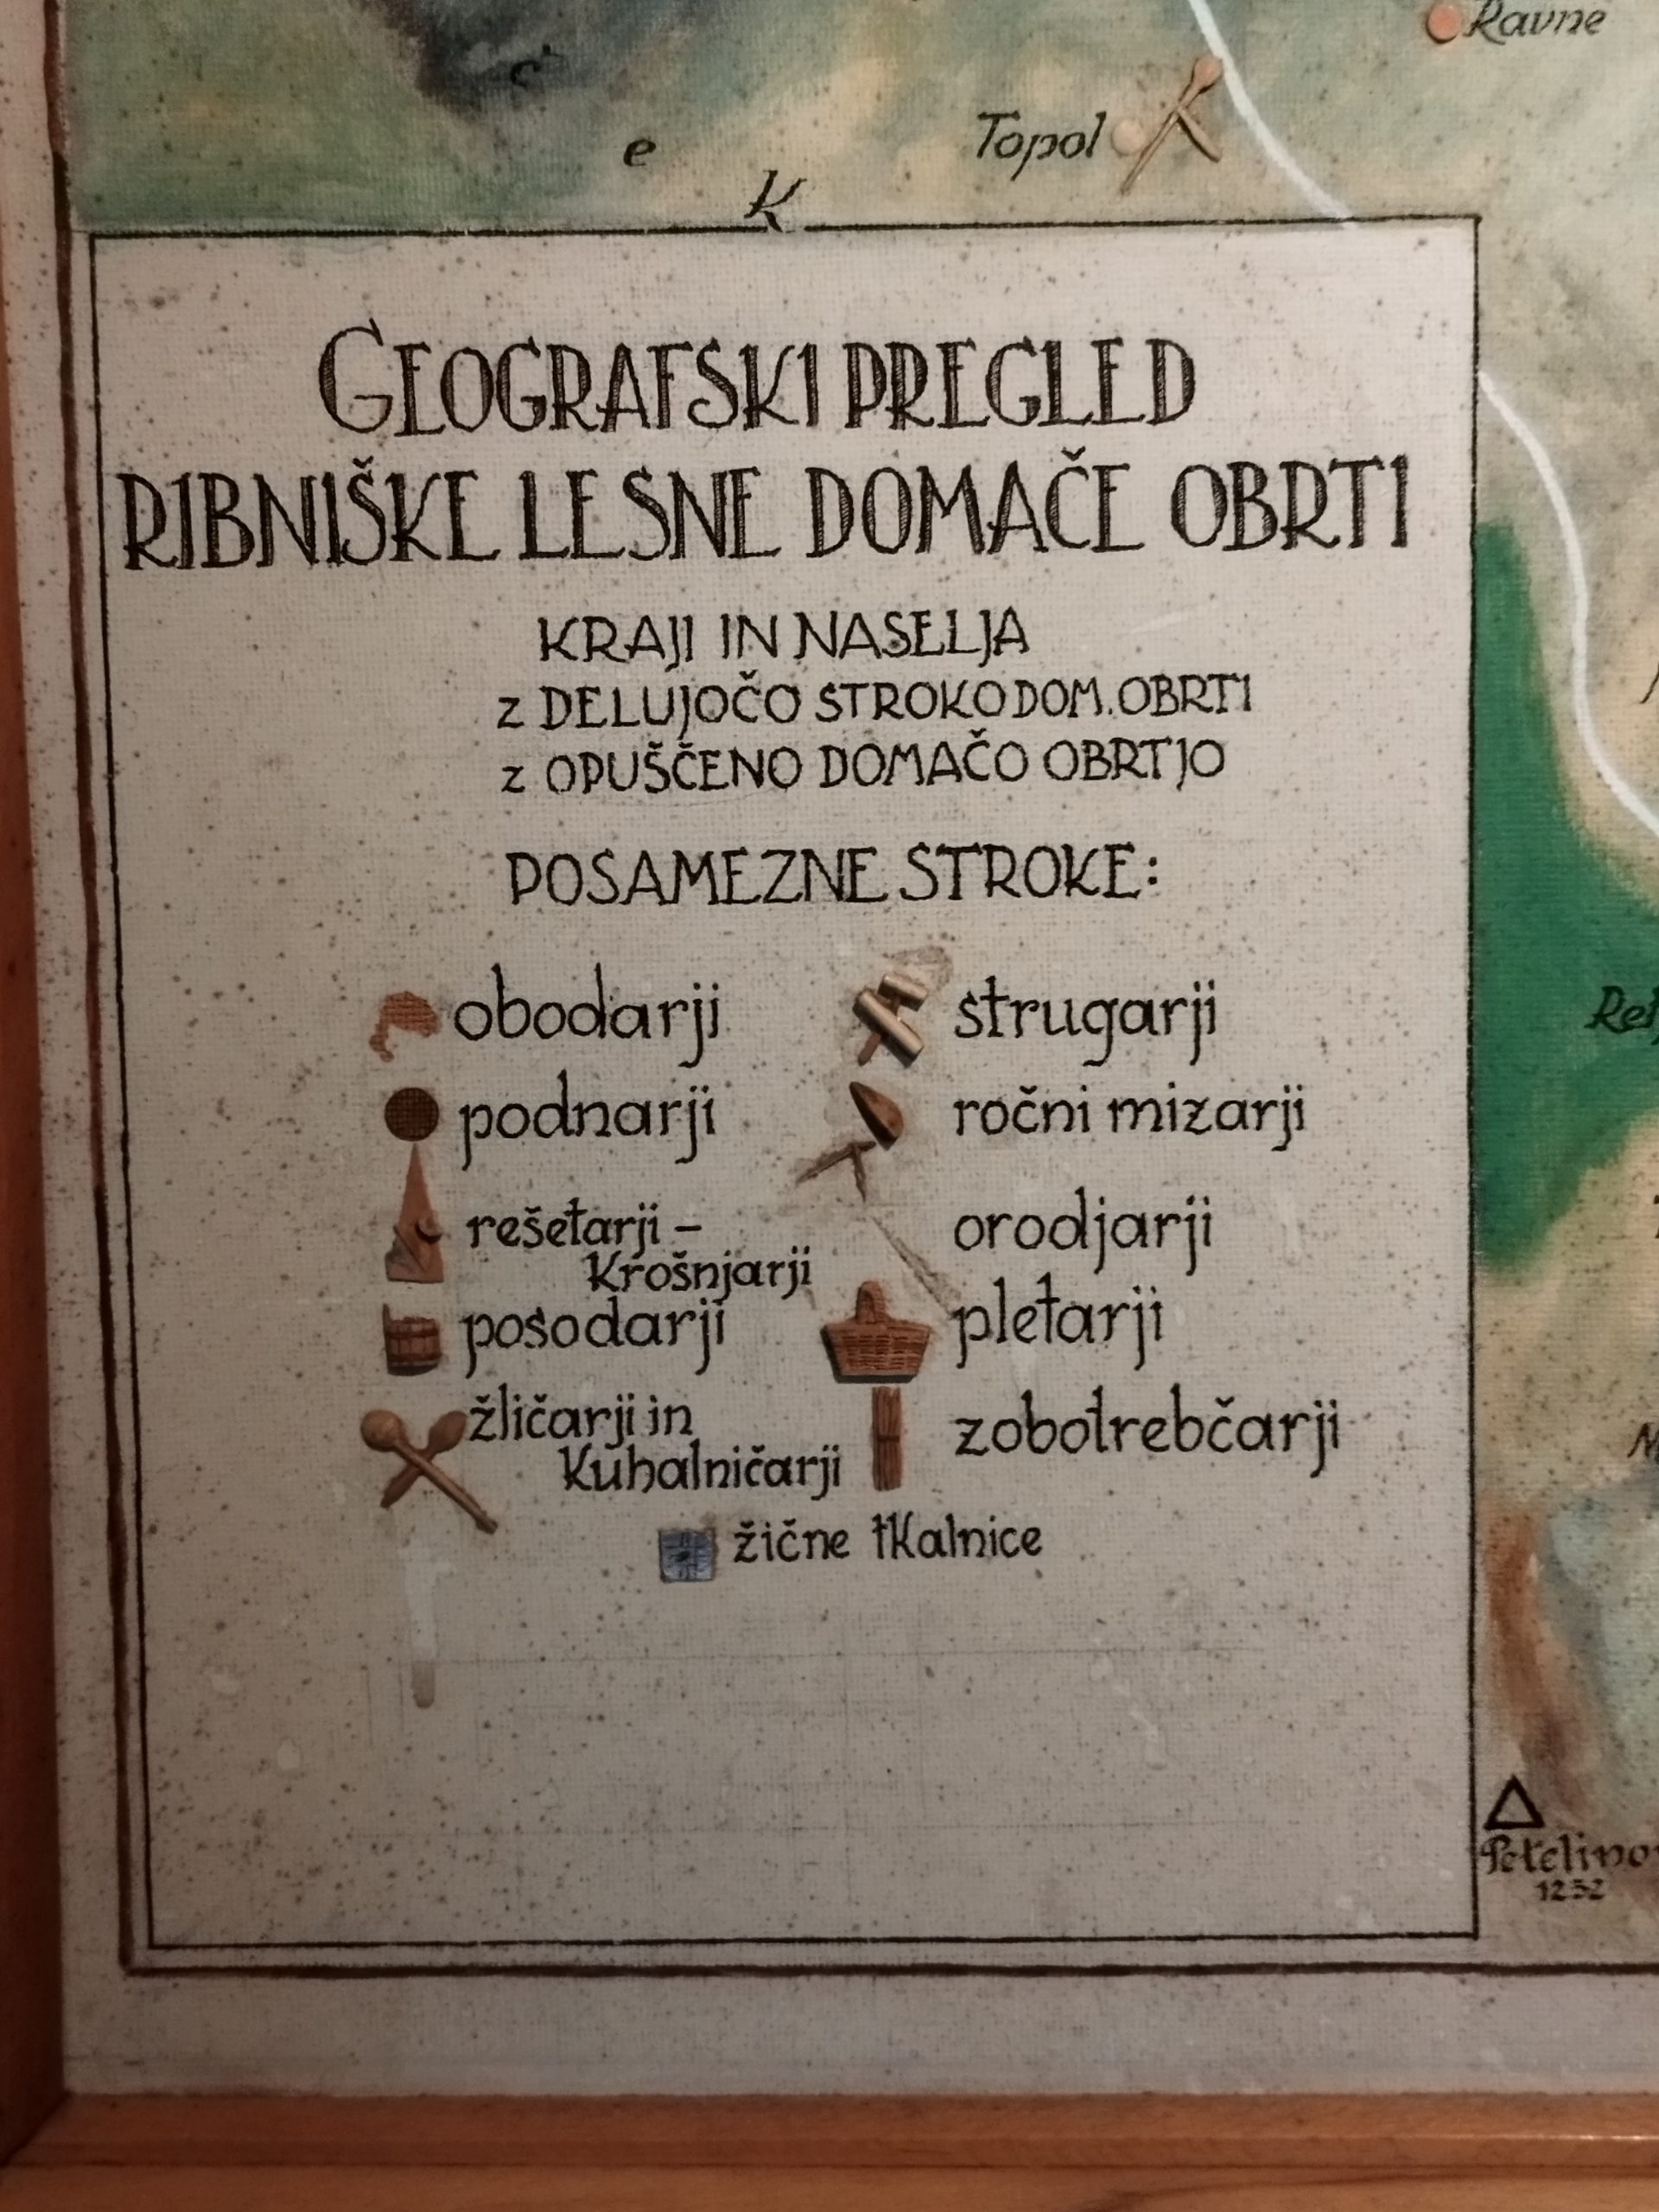 Ravne
Topol
c
e
K
GEOGRAFSKI PREGLED
RIBNIŠKE LESNE DOMAČE OBRTI
KRAJI IN NASELJA
z DELUJOČO STROKO DOM. OBRTI
z OPUŠČENO DOMAČO OBRTJO
POSAMEZNE STROKE:
obodarji
podnarji
rešetarji –
krošnjarji
posodarji
žličarji in
kuhalničarji
strugarji
ročni mizarji
orodjarji
pletarji
zobotrebčarji
žične tkalnice
1232